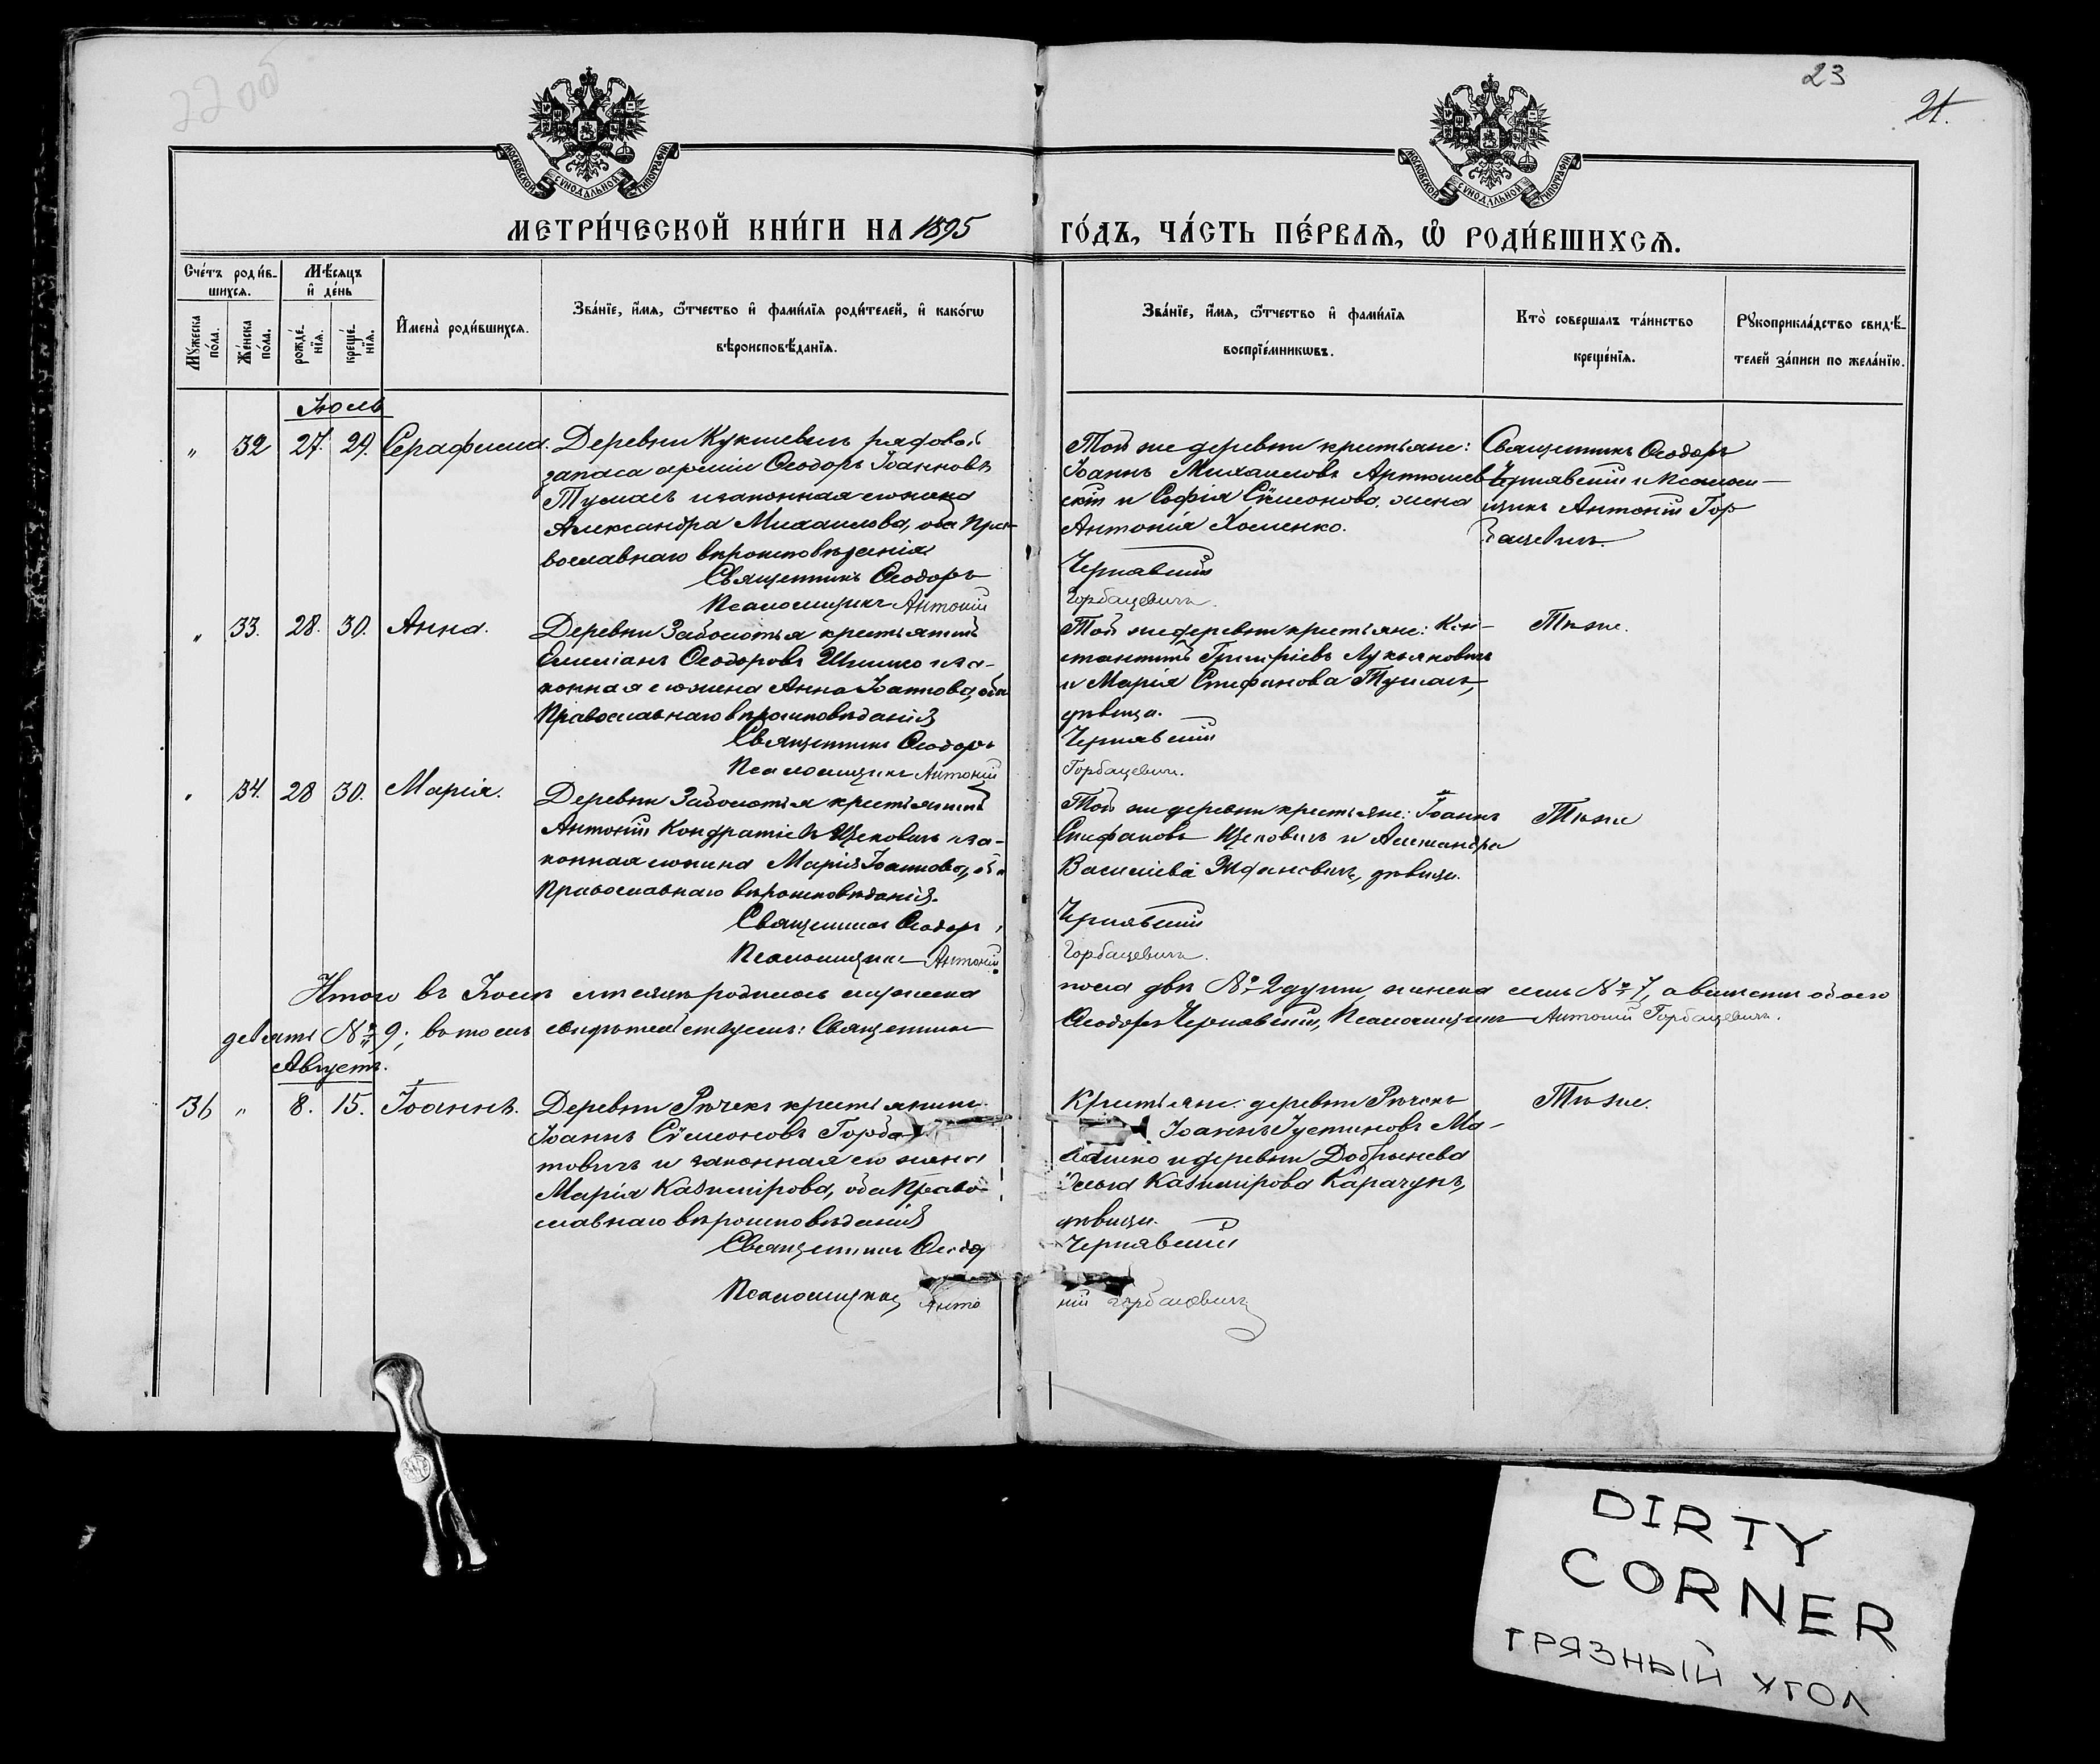 2200б
23
21.
МОСКОВСКОЙ СУНОДАЛЬНОЙ ТИПОГРАФІИ
МОСКОВСКОЙ СУНОДАЛЬНОЙ ТИПОГРАФІИ
МЕТРИ́ЧЕСКОЙ КНИ́ГИ НА 1895 ГО́ДЪ, ЧА́СТЬ ПЕ́РВАѦ, Ѡ РОДИ́ВШИХСѦ.
Сче́тъ роди́вшихсѧ.
Мꙋ́жеска по́ла.
Же́нска по́ла.
Мѣ́сѧцъ и҆ де́нь
рожде́нїѧ.
креще́нїѧ.
И҆мена̀ роди́вшихсѧ.
Зва́нїе, и҆́мѧ, ѻ҆́тчество и҆ фами́лїѧ роди́телей, и҆ како́гѡ
вѣроисповѣ́данїѧ.
Зва́нїе, и҆́мѧ, ѻ҆́тчество и҆ фами́лїѧ
воспрїе́мникѡвъ.
Кто̀ соверша́лъ та́инство
креще́нїѧ.
Рꙋкоприкла́дство свидѣ́-
телей за́писи по жела́нїю.
Іюль
" 32 27. 29. Серафима.
Деревни Кукшевичъ рядовой
запаса арміи Ѳеодоръ Іоанновъ
Тумашъ и законная его жена
Александра Михаилова, оба Пра-
вославнаго вѣроисповѣданія
Священникъ Ѳеодоръ
Псаломщикъ Антоній
Той же деревни крестьяне:
Іоаннъ Михаиловъ Артюшев-
скій и Софія Сѵмеонова, жена
Антонія Хоменко.
Чернявскій
Горбацевичъ.
Священникъ Ѳеодоръ
Чернявскій и Псалом-
щикъ Антоній Гор
бацевичъ.
" 33. 28. 30. Анна.
Деревни Заболотья крестьянинъ
Емиліанъ Ѳеодоровъ Шишко и за-
конная его жена Анна Іоаннова, оба
Православнаго вѣроисповѣданія
Священникъ Ѳеодоръ
Псаломщикъ Антоній
Той же деревни крестьяне: Кон-
стантинъ Григоріевъ Лукьяновичъ
и Марія Стефанова Тумашъ,
дѣвица.
Чернявскій
Горбацевичъ.
Тѣ же.
" 34. 28 30. Марія.
Деревни Заболотья крестьянинъ
Антоній Кондратіевъ Щековичъ и за-
конная его жена Марія Іоаннова, оба
Православнаго вѣроисповѣданія.
Священникъ Ѳеодоръ
Псаломщикъ Антоній
Той же деревни крестьяне: Іоаннъ
Стефановъ Щековичъ и Александра
Василіева Ждановичъ, дѣвица.
Чернявскій
Горбацевичъ.
Тѣ же
Итого въ Іюлѣ мѣсяцѣ родилось мужеска пола двѣ № 2 души, женска семь № 7, а вмѣстѣ обоего
девять № 9; въ томъ свидѣтельствуемъ: Священникъ Ѳеодоръ Чернявскій, Псаломщикъ Антоній Горбацевичъ.
Августъ.
36 " 8. 15. Іоаннъ.
Деревни Рѣчекъ крестьянинъ
Іоаннъ Сѵмеоновъ Горба
товичъ и законная его жена
Марія Казимірова, оба Право-
славнаго вѣроисповѣданія
Священникъ Ѳеодо
Псаломщикъ Анто
Крестьяне: деревни Рѣчекъ
Іоаннъ Іустиновъ Ма-
и деревни Добрынева
Казимірова Карачунъ,
дѣвица.
Чернявскій
ній Горбацевичъ
Тѣ же.
DIRTY
CORNER
ГРЯЗНЫЙ УГОЛ